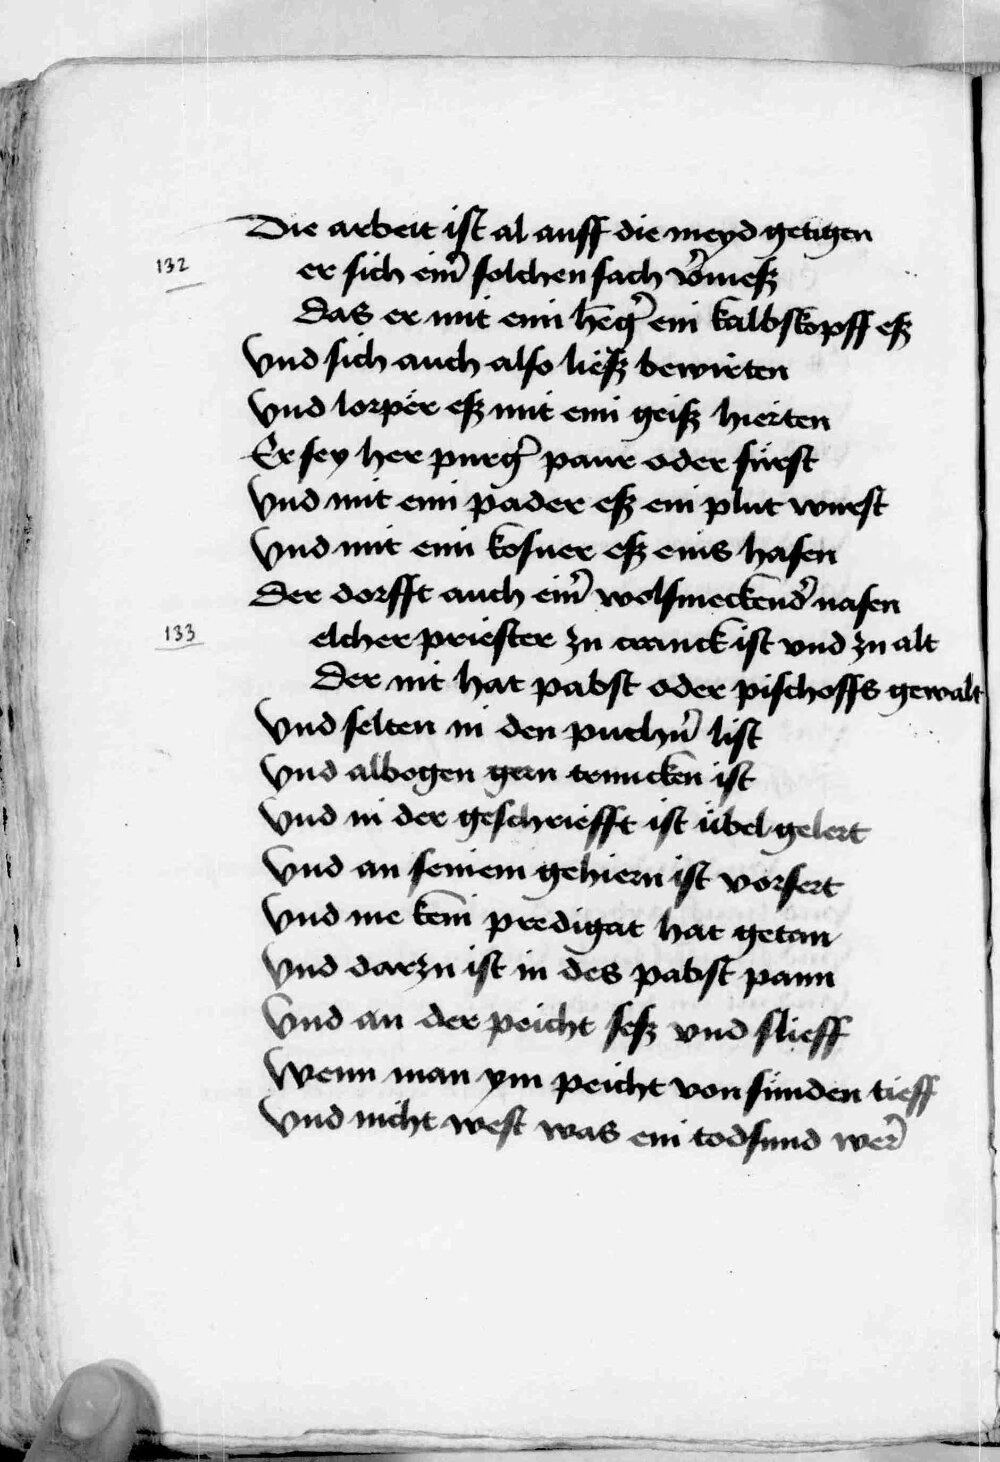 Die arbeit ist al auff die meyd getigen
132
er sich eim̄ solchen sach v̄meß
Das er mit eim henḡ ein kalbskopff eß
Vnd sich auch also ließ bewirten
Vnd lorper eß mit eim geiß hierten
Er sey her purḡ paur oder fürst
Vnd mit eim pader eß ein plut wurst
Vnd mit eim kosner eß eins hasen
Der dorfft auch ein̄ wolsmeckend̄ nasen
133
elcher priester zu cranck ist vnd zu alt
Der nit hat pabst oder pischoffs gewalt
Vnd selten in den puchn̄ list
Vnd albogen gern truncken ist
Vnd in der geschriefft ist übel gelert
Vnd an seinem gehiern ist vorsert
Vnd nie kein predigat hat getan
Vnd darzu ist in des pabst pann
Vnd an der peicht seß vnd slieff
Wenn man ym peicht von sünden tieff
Vnd nicht west was ein todsund wer̄